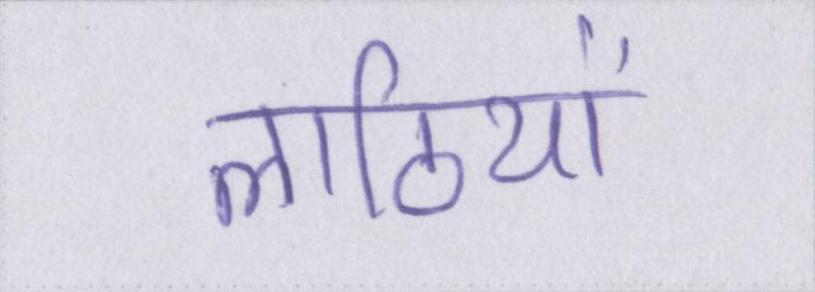 लाठियों